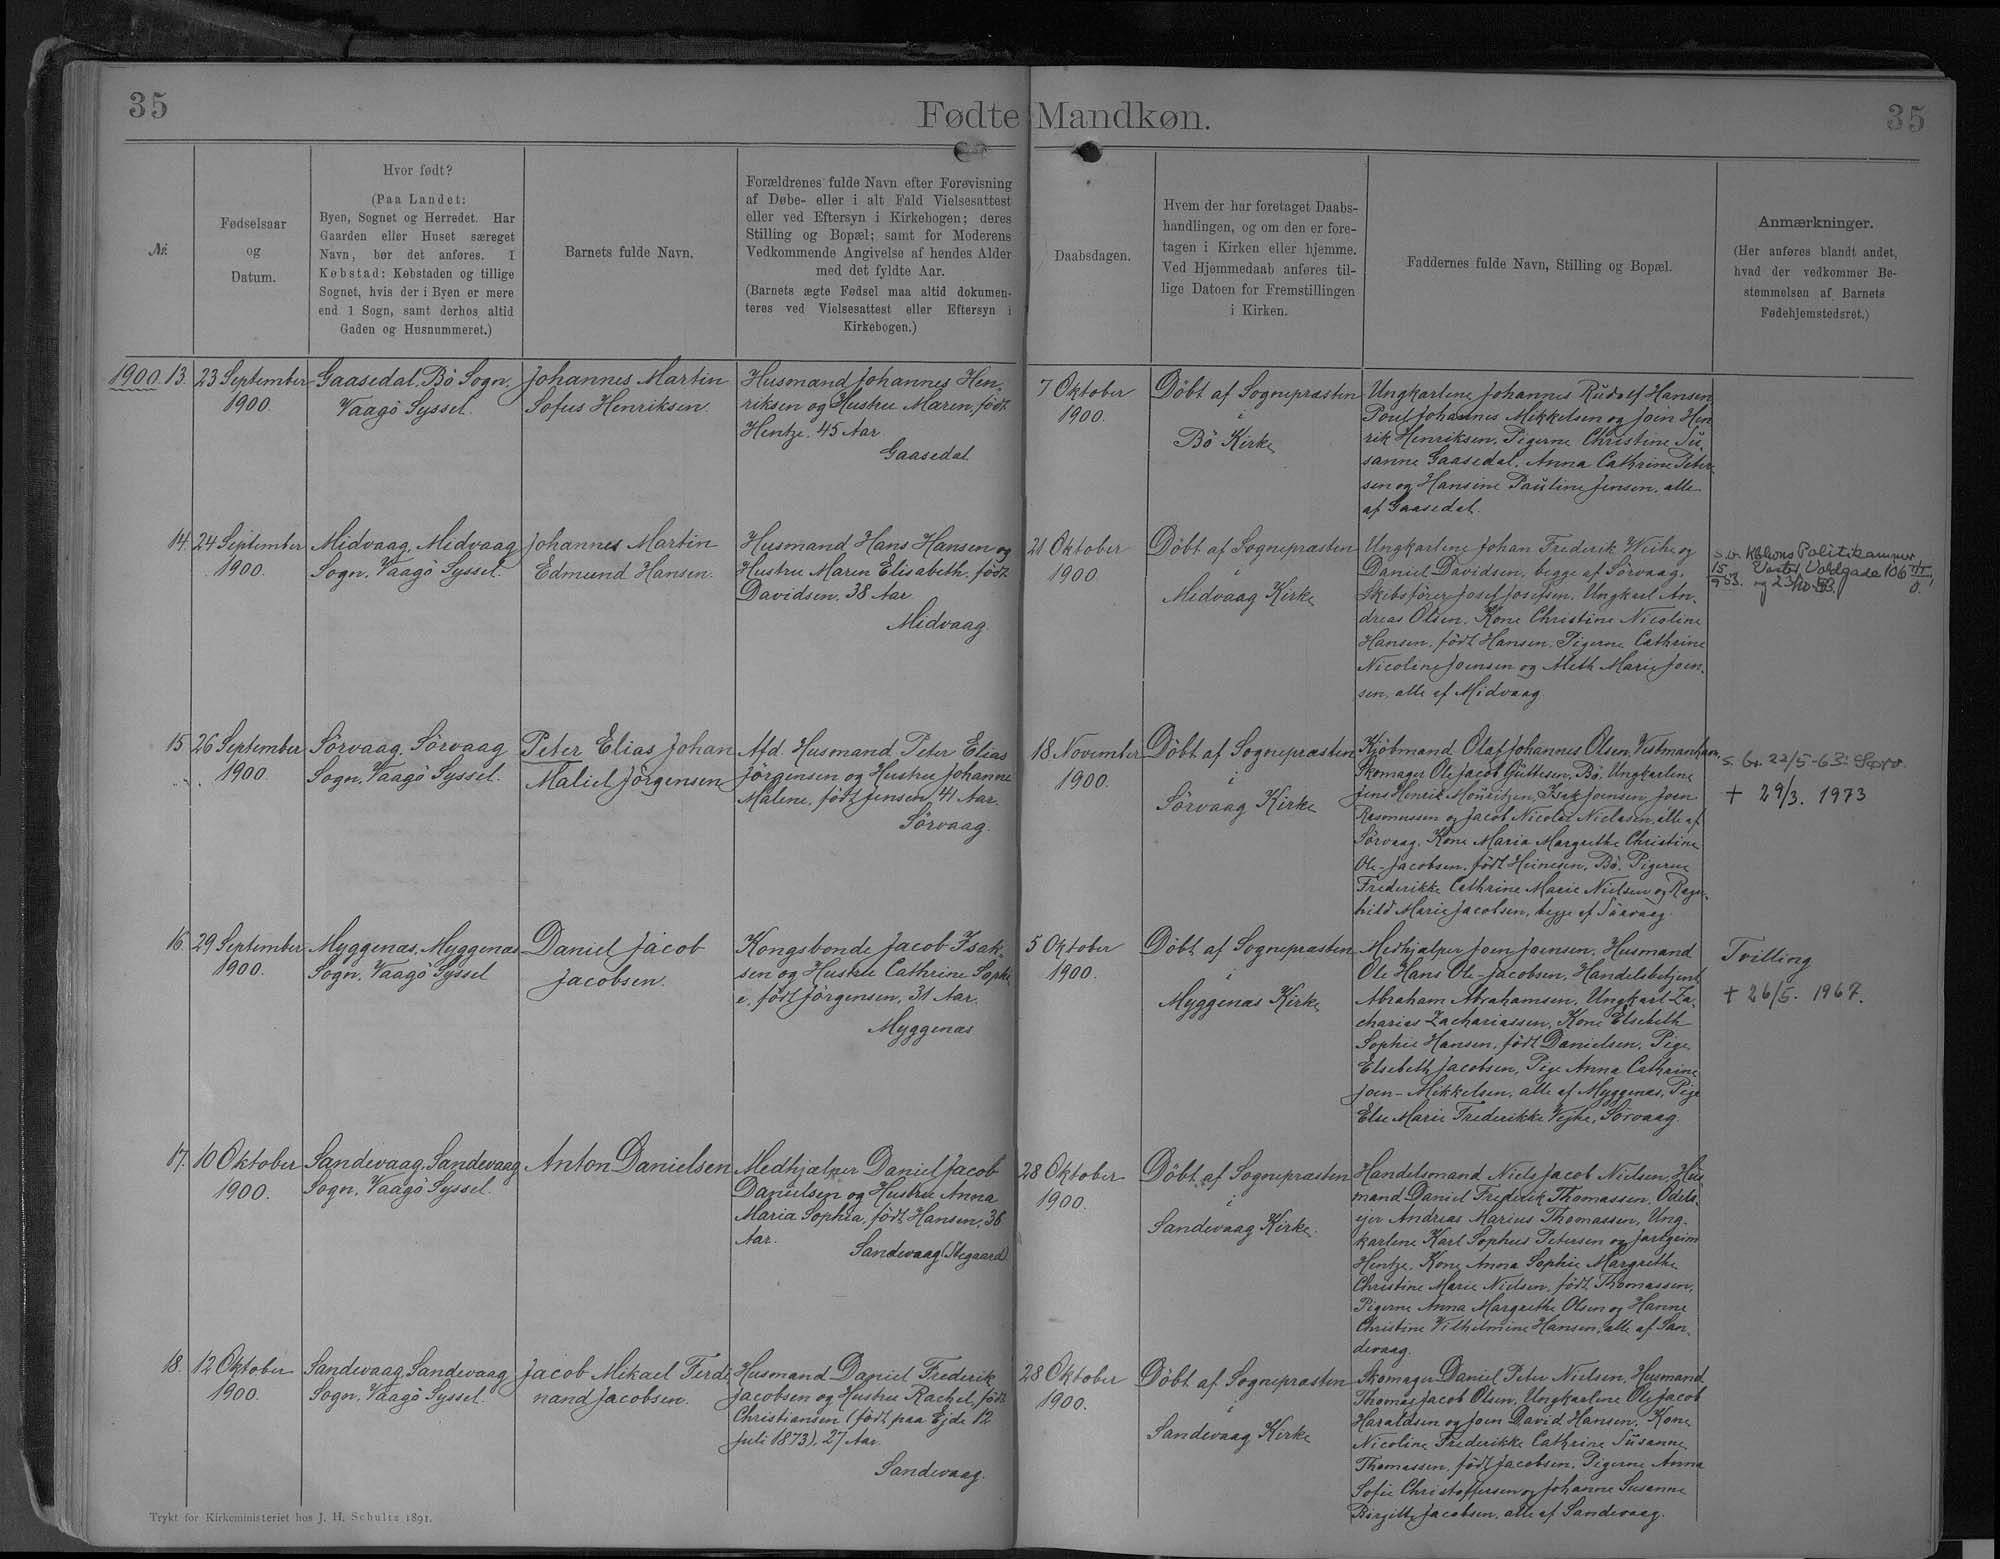 35
Fødte Mandkøn.
35
№
Fødselsaar
og
Datum.
Hvor født?
(Paa Landet:
Byen, Sognet og Herredet. Har
Gaarden eller Huset særeget
Navn, bør det anføres. I
Købstad: Købstaden og tillige
Sognet, hvis der i Byen er mere
end 1 Sogn, samt derhos altid
Gaden og Husnummeret.)
Barnets fulde Navn.
Forældrenes fulde Navn efter Forevisning
af Døbe- eller i alt Fald Vielsesattest
eller ved Eftersyn i Kirkebogen; deres
Stilling og Bopæl; samt for Moderens
Vedkommende Angivelse af hendes Alder
med det fyldte Aar.
(Barnets ægte Fødsel maa altid dokumen-
teres ved Vielsesattest eller Eftersyn i
Kirkebogen.)
Daabsdagen.
Hvem der har foretaget Daabs-
handlingen, og om den er fore-
tagen i Kirken eller hjemme.
Ved Hjemmedaab anføres til-
lige Datoen for Fremstillingen
i Kirken.
Faddernes fulde Navn, Stilling og Bopæl.
Anmærkninger.
(Her anføres blandt andet,
hvad der vedkommer Be-
stemmelsen af Barnets
Fødehjemstedsret.)
1900. 13.
23 September
1900.
Gaasedal, Bö Sogn,
Vaagö Syssel.
Johannes Martin
Sofus Henriksen.
Husmand Johannes Hen-
riksen og Hustru Maren, født
Hentze. 45 Aar.
Gaasedal
7 Oktober
1900.
Döbt af Sognepræsten
i
Bö Kirke
Ungkarlene Johannes Rudolf Hansen
Poul Johannes Mikkelsen og Join Hen
rik Henriksen, Pigerne Christine Su
sanne Gaasedal, Anna Cathrine Peter-
sen og Hansine Pauline Jensen, alle
af Gaasedal.
14.
24 September
1900.
Midvaag, Midvaag
Sogn, Vaagö Syssel.
Johannes Martin
Edmund Hansen.
Husmand Hans Hansen og
Hustru Maren Elisabeth, født
Davidsen. 38 Aar.
Midvaag.
21 Oktober
1900.
Döbt af Sognepræsten
i
Midvaag Kirke
Ungkarlene Johan Frederik Weihe og
Daniel Davidsen, begge af Sörvaag.
Skibsfører Josef Josefsen. Ungkarl An-
dreas Olsen. Kone Christine Nicoline
Hansen, født Hansen. Pigerne Cathrine
Nicoline Joensen og Meth Marie Joen-
sen, alle af Midvaag
Politikammer
Voldgade 106
15
953.
15
26 September
1900.
Sörvaag, Sörvaag
Sogn, Vaagö Syssel.
Peter Elias Johan
Maliel Jörgensen
Afd. Husmand Peter Elias
Jörgensen og Hustru Johanne
Malene, født Jensen, 41 Aar.
Sörvaag.
18 November
1900.
Döbt af Sognepræsten
i
Sörvaag Kirke
Kjöbmand Olaf Johannes Olsen, Vestmanhavn,
Skomager Ole Jacob Guttesen, Bö, Ungkarlene
Jens Henrik Mouritzen, Isak Joensen, Joen
Rasmussen og Jacob Nicolai Niclasen, alle af
Sörvaag. Kone Maria Margrethe Christine
Ole-Jacobsen, født Heinesen, Bö. Pigerne
Frederikke Cathrine Marie Nielsen og Ragn-
hild Marie Jacobsen, begge af Sörvaag.
22/5-63 Sørv.
+ 29/3. 1973
16.
29 September
1900.
Myggenæs, Myggenæs
Sogn, Vaagö Syssel
Daniel Jacob
Jacobsen.
Kongsbonde Jacob Isak-
sen og Hustru Cathrine Sophi-
e, født Jörgensen, 31 Aar.
Myggenæs
5 Oktober
1900.
Döbt af Sognepræsten
i
Myggenæs Kirke
Medhjælper Joen Joensen, Husmand
Ole Hans Ole-Jacobsen, Handelsbetjent
Abraham Abrahamsen. Ungkarl Za-
charias Zachariassen, Kone Elsebeth
Sophie Hansen, født Danielsen, Pige
Elsebeth Jacobsen, Pige Anna Cathrine
Joen-Mikkelsen, alle af Myggenæs, Pige
Else Marie Frederikke Vejhe, Sörvaag.
Tvilling
+ 26/5. 1967.
17.
10 Oktober
1900.
Sandevaag, Sandevaag
Sogn, Vaagö Syssel.
Anton Danielsen
Medhjælper Daniel Jacob
Danielsen og Hustru Anna
Maria Sophia, født Hansen, 36
Aar.
Sandevaag (Stegaard)
28 Oktober
1900.
Döbt af Sognepræsten
i
Sandevaag Kirke.
Handelsmand Niels Jacob Nielsen, Hus
mand Daniel Frederik Thomassen, Odels-
ejer Andreas Marius Thomassen, Ung-
karlene Karl Sophus Petersen og Jartgeim
Hentze. Kone Anna Sophie Margrethe
Christine Marie Nielsen, født Thomassen,
Pigerne Anna Margrethe Olsen og Hanne
Christine Vilhelmine Hansen, alle af San-
devaag.
18.
12 Oktober
1900.
Sandevaag, Sandevaag
Sogn, Vaagö Syssel.
Jacob Mikael Ferdi
nand Jacobsen.
Husmand Daniel Frederik
Jacobsen og Hustru Rachel, født
Christiansen (født paa Ejde 12
Juli 1873), 27 Aar.
Sandevaag.
28 Oktober
1900.
Döbt af Sognepræsten
i
Sandevaag Kirke
Skomager Daniel Peter Nielsen, Husmand
Thomas Jacob Olsen, Ungkarlene Ole Jacob
Haraldsen og Joen David Hansen, Kone
Nicoline Frederikke Cathrine Susanne
Thomassen, født Jacobsen, Pigerne Anna
Sofie Christoffersen og Johanne Susanne
Birgitte Jacobsen, alle af Sandevaag.
Trykt for Kirkeministeriet hos J. H. Schultz 1891.